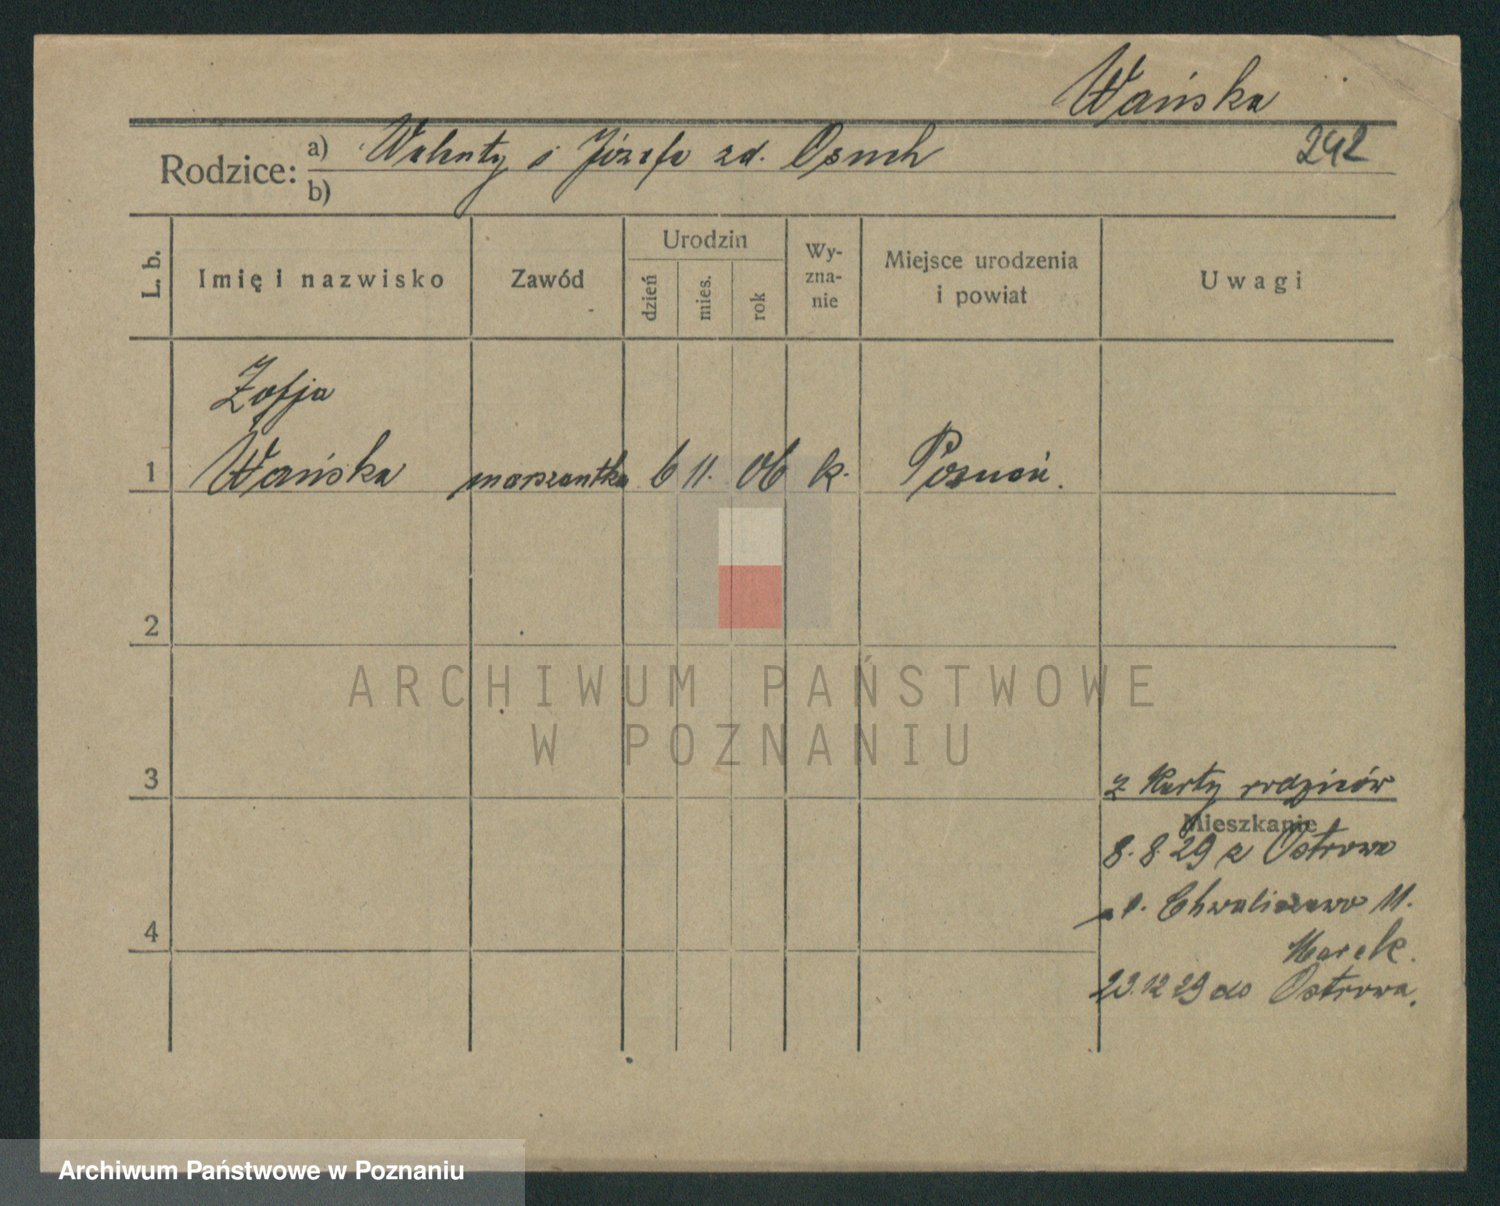 Wańska
242
Rodzice: a) Walenty i Józefa zd. Osuch
b)
L. b.
Imię i nazwisko
Zawód
Urodzin
dzień
mies.
rok
Wy-
zna-
nie
Miejsce urodzenia
i powiat
Uwagi
Zofja
1 Wańska marszantka 6 11. 06 k. Poznań.
2
ARCHIWUM PAŃSTWOWE
W POZNANIU
3
z Karty rodziców
Mieszkanie
8.8.29 z Ostrowa
Chwaliszewo 11.
4
Marek.
23.12 29 do Ostrowa.
Archiwum Państwowe w Poznaniu